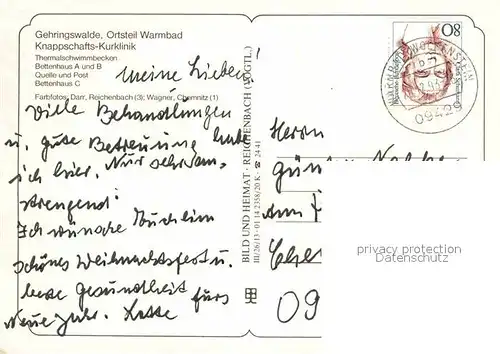 Gehringswalde, Ortsteil Warmbad
Knappschafts-Kurklinik
Thermalschwimmbecken
Bettenhaus A und B
Quelle und Post
Bettenhaus C
Farbfotos: Darr, Reichenbach (3); Wagner, Chemnitz (1)
Meine Lieben!
Viele Behandlungen
u. gute Betreuung habe
ich hier. Nur sehr an-
strengend!
Ich wünsche
schönes Weihnachtsfest u.
beste Gesundheit fürs
Neue Jahr.
BILD UND HEIMAT · REICHENBACH (VOGTL.)
III/26/13 · 01 14 2358/20 K
Herrn
Gün
Am
Che
09
80
0942
privacy protection
Datenschutz